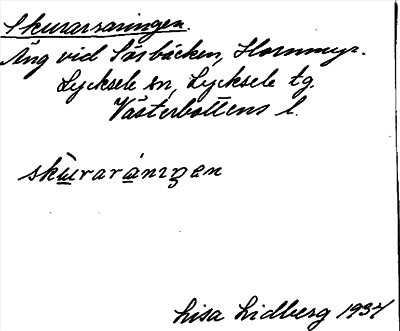 Skurarsaningen.
Äng vid Sörbäcken, Hornmyr.
Lycksele sn, Lycksele tg.
Västerbottens l.
skùrarániŋen
Lisa Lidberg 1934